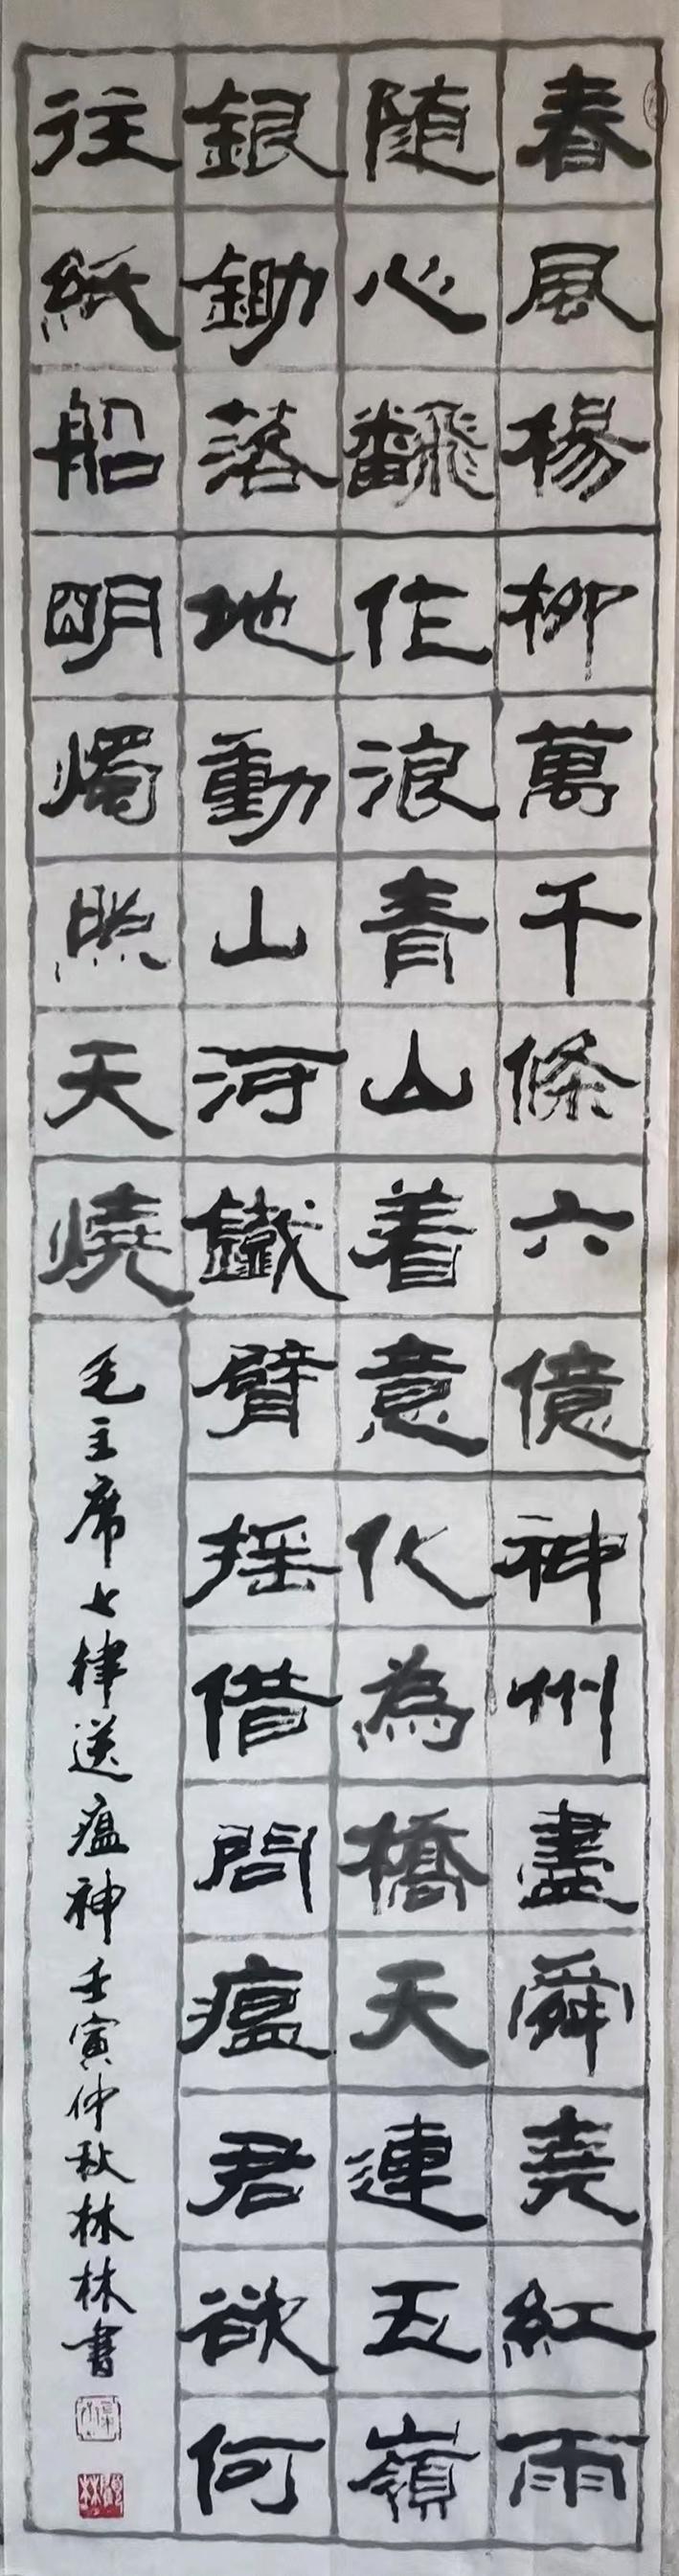 春風楊柳萬千條六億神州盡舜堯紅雨
隨心飜作浪青山着意化為橋天連五嶺
銀鋤落地動山河鐵臂搖借問瘟君欲何
往紙船明燭照天燒
毛主席七律送瘟神壬寅仲秋林林書